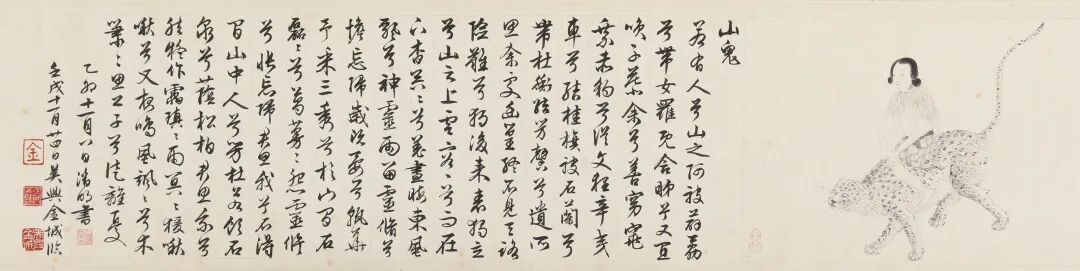 山鬼
若有人兮山之阿被薜荔
兮帶女羅既含睇兮又宜
笑子慕余兮善窈窕
乘赤豹兮從文狸辛夷
車兮結桂旗被石蘭兮
帶杜衡折芳馨兮遺所
思余處幽篁終不見天路
險難兮獨後來表獨立
兮山之上雲容々兮而在
下杳冥々兮羌晝晦東風
飄兮神靈雨留靈脩兮
憺忘歸歲既晏兮孰華
予采三秀兮於山間石
磊々兮葛蔓々怨靈脩
兮悵忘歸君思我兮不得
間山中人兮芳杜若飲石
泉兮蔭松柏君思我兮
然疑作靁填々雨冥々猨啾
啾兮又夜鳴風颯々兮木
蕭々思公子兮徒離憂
乙卯十一月八日徵明書
壬戌十一月廿四日吳興金城臨
金